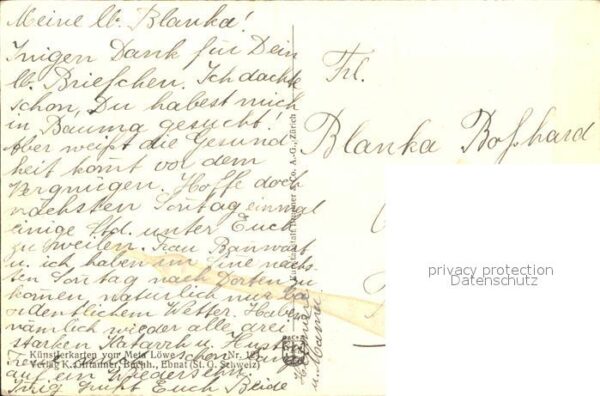 Meine lb. Blanka!
Inigen Dank für Dein
lb. Briefchen. Ich dachte
schon, Du habest mich
in Bauma gesucht!
Aber weißt die Gesund
heit komt vor dem
Vergnügen. Hoffe doch
nächsten Sontag einmal
einige Std. unter Euch
zu weilen. Frau Banwart
u. ich haben im Sine näch-
sten Sontag nach Dorten zu
komen, natürlich nur bei
ordentlichem Wetter. Haben
nämlich wieder alle drei
starken Katarrh u. Husten.
auf ein Wiedersehn.
Inig grüßt Euch Beide
u. Mama.
Künstlerkarten von Meta Löwe Nr.
Verlag K. Gittanner, Buchh., Ebnat (St. G. Schweiz)
A.-G., Zürich
Frl.
Blanka Boßhard
privacy protection
Datenschutz